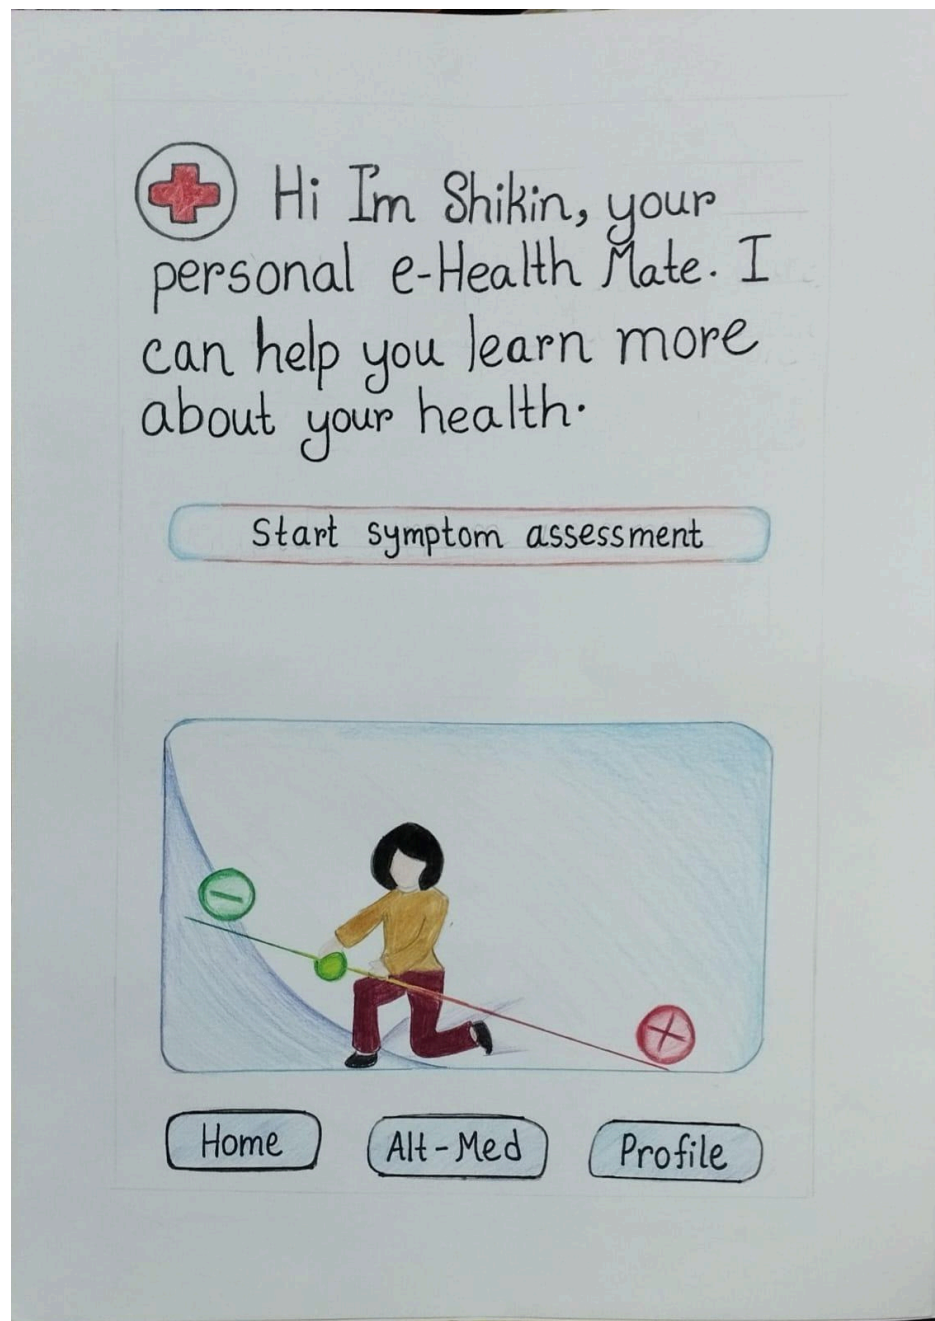 Hi I'm Shikin, your
personal e-Health Mate. I
can help you learn more
about your health.
Start symptom assessment
Home
Alt-Med
Profile